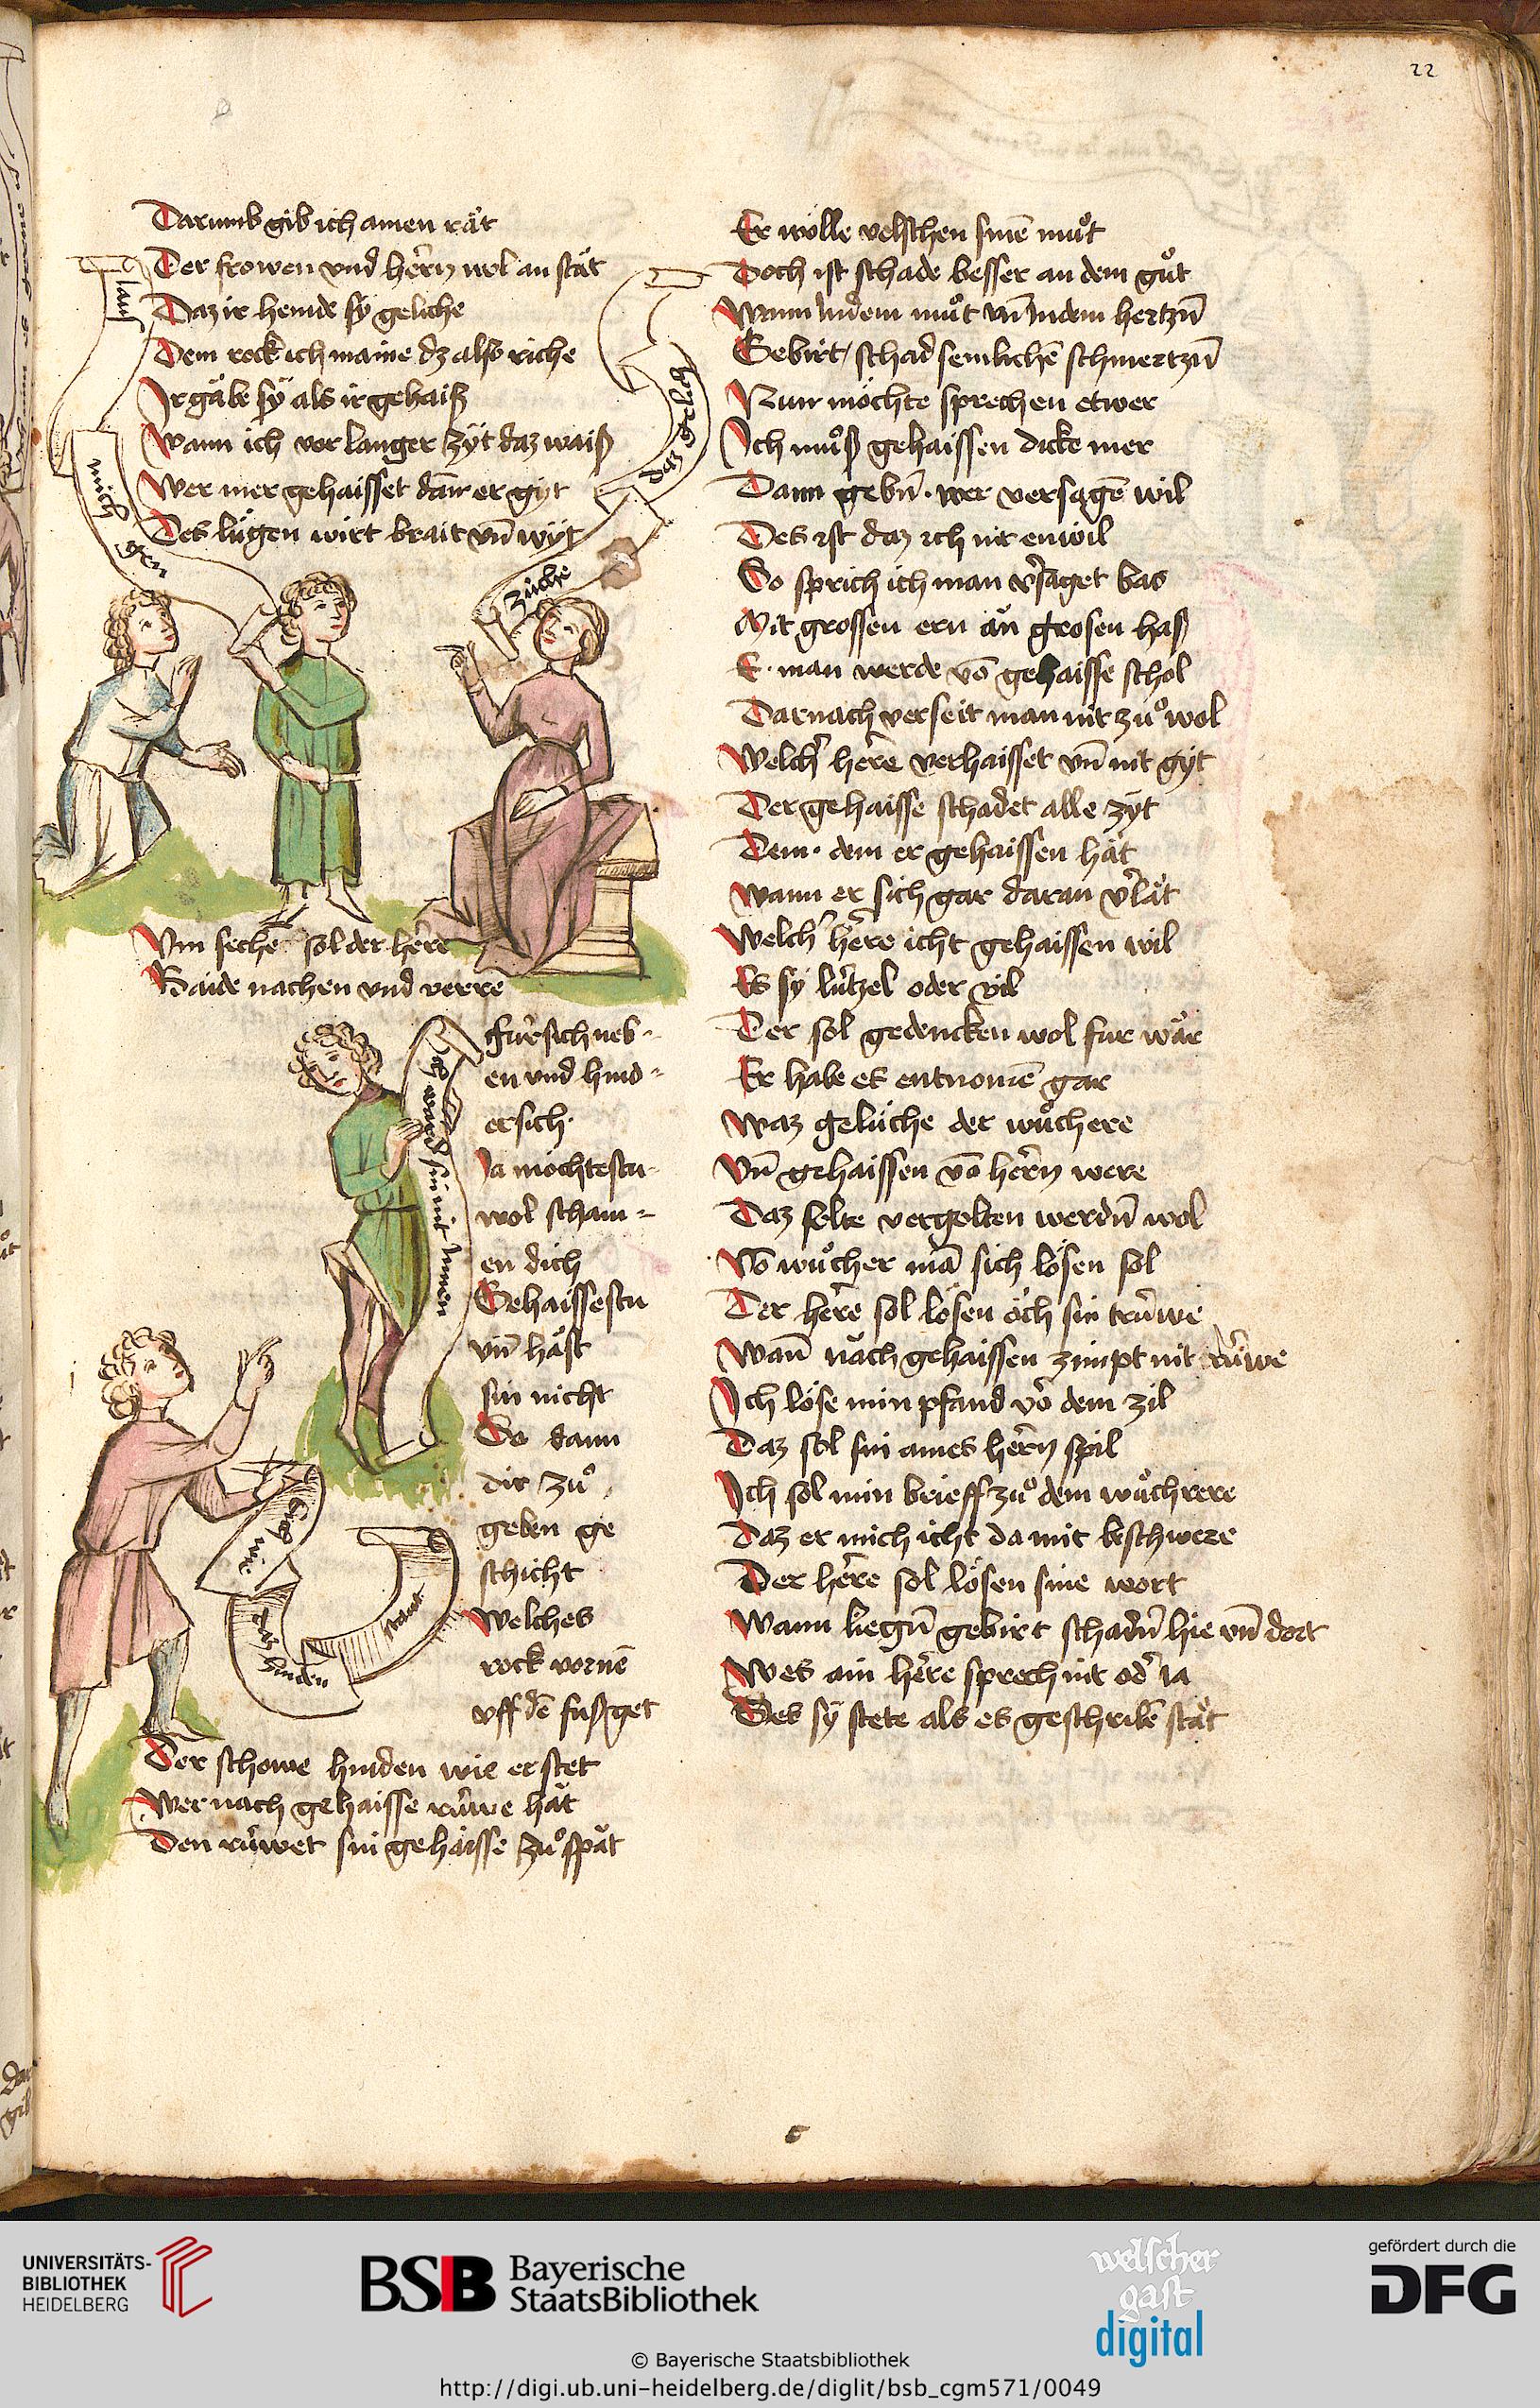 22
Darumb gib ich ainen rǎt
Der frowen vnd her̄n wol an stǎt
Daz ir hemde sy geliche
Dem rock ich maine dz also riche
Ir gǎbe sy als ir gehaiß
Wann ich vor langer zyt daz waiß
Wer mer gehaisset dañ er gyt
Des lúgen wirt brait vn̄ wyt
lauß
mich
gen
daz gelich
zúche
Vm sechē sol der herre
Baide nachen vnd verre
Fúr sich neb-
en vnd hind-
er sich.
Ja möchtestu
wol scham-
en dich
Gehaissestu
vn̄ hǎst
sin nicht
So dann
dir zuͦ
geben ge
schicht
Welches
rock vornē
vff dē fuß get
Der schowe hinden wie er stet
Wer nach gehaisse rúwe hǎt
Den rúwet sin gehaisse zuͦ spǎt
Ich wird sin nit Innen
lůg wie
daz
hinden
stand
Er wölle velschen sinē muͦt
Doch ist schade besser an dem guͦt
Wann In dem muͦt vn̄ In dem hertzn̄
Gebirt schad semlichē schmertzn̄
Nun möchte sprechen etwer
Ich muͦß gehaissen dicke mer
Dann gebn̄. wer versagē wil
Des ist daz ich nit enwil
So sprich ich man v̓saget bas
Mit grossen ern ǎn grosen haß
E. man werde vō gehaisse schol
Darnach verseit man nit zuͦ wol
Welch̓ herre verhaisset vn̄ nit gyt
Der gehaisse schadet alle zyt
Dem. dem er gehaissen hǎt
Wann er sich gar daran v̓lǎt
Welch̓ herre icht gehaissen wil
Es sy lútzel oder vil
Der sol gedencken wol fur wǎr
Er habe es entnomē gar
Waz geluche der wuͦchere
Vn̄ gehaissen vō her̄n were
Daz solte vergolten werdn̄ wol
Vō wuͦcher mā sich lösen sol
Der herre sol lösen óch sin trúwe
Wan̄ nǎch gehaissen zimpt nit rúwe
Ich löse min pfand vō dem zil
Daz sol sin aines her̄n spil
Ich sol min brieff zuͦ dem wuͦchrere
Daz er mich icht da mit beschwere
Der herre sol lösen sine wort
Wann liegn̄ gebirt schadn̄ hie vn̄ dort
Wes ain herre sprech nit od̓ ia
Des sy stete als es geschribē stǎt
c
UNIVERSITÄTS-
BIBLIOTHEK
HEIDELBERG
BSB Bayerische
StaatsBibliothek
welscher
gast
digital
gefördert durch die
DFG
© Bayerische Staatsbibliothek
http://digi.ub.uni-heidelberg.de/diglit/bsb_cgm571/0049